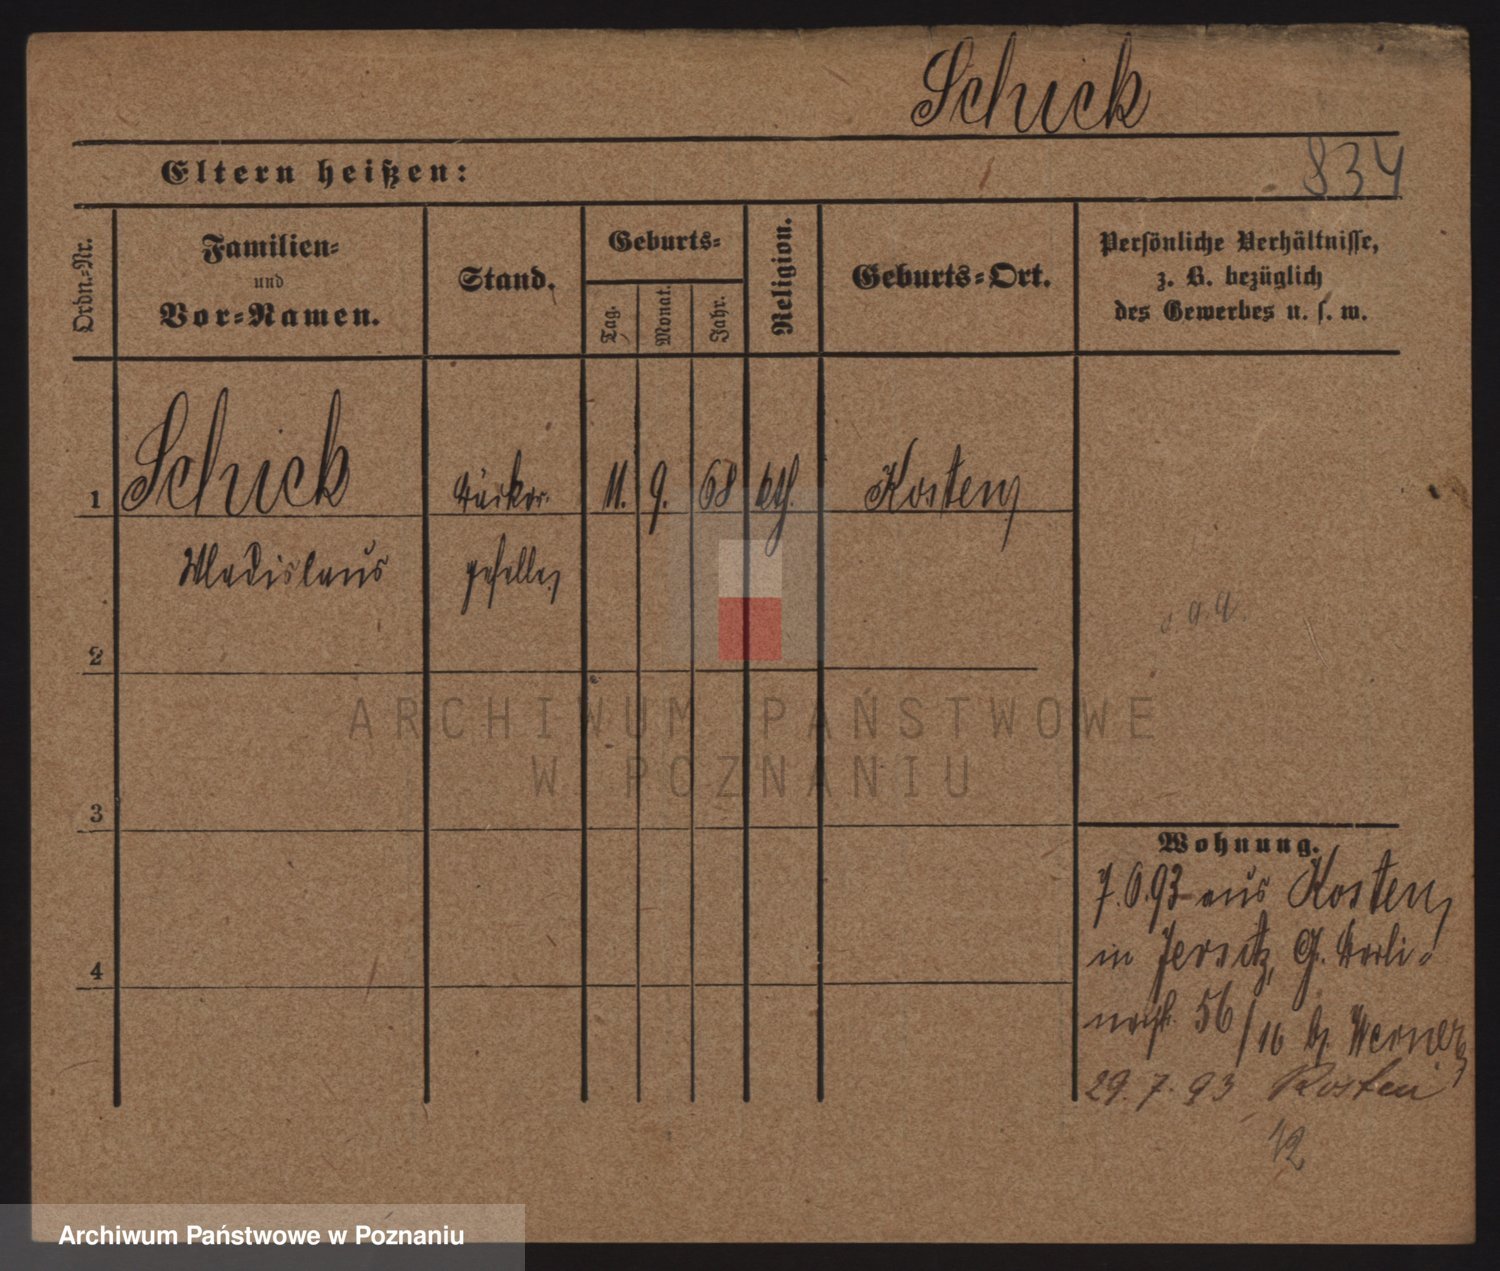 Schick
Eltern heißen:
834
Ordn.-Nr.
Familien-
und
Vor-Namen.
Stand.
Geburts-
Tag.
Monat.
Jahr.
Religion.
Geburts-Ort.
Persönliche Verhältnisse,
z. B. bezüglich
des Gewerbes u. s. w.
1
Schick
Bäcker-
11.
9.
68
kth.
Kosten
Wladislaus
geselle
2
3
4
Wohnung.
7.6.93 aus Kosten
in Jersitz, G. Berli-
nerstr. 56/16 b. Werner
29. 7. 93 Kosten
12
ARCHIWUM PAŃSTWOWE
W POZNANIU
Archiwum Państwowe w Poznaniu